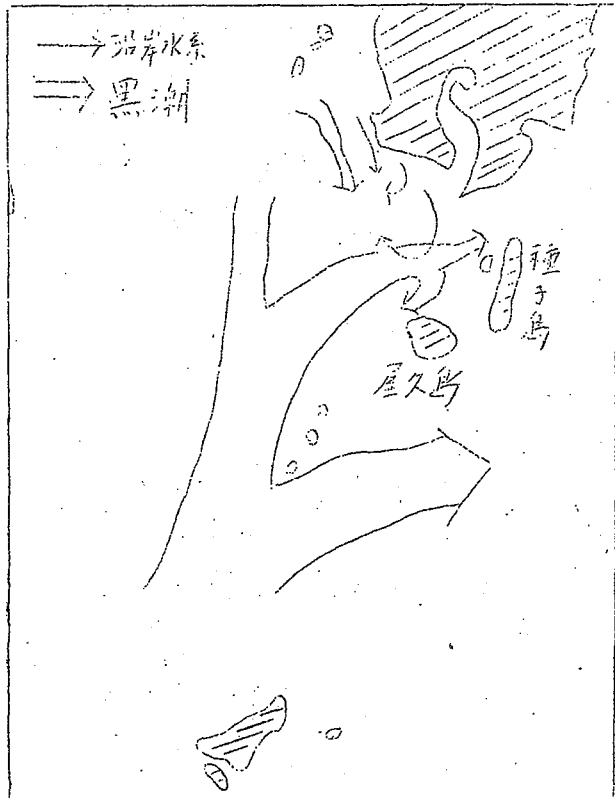 沿岸水系
黒潮
種子島
屋久島